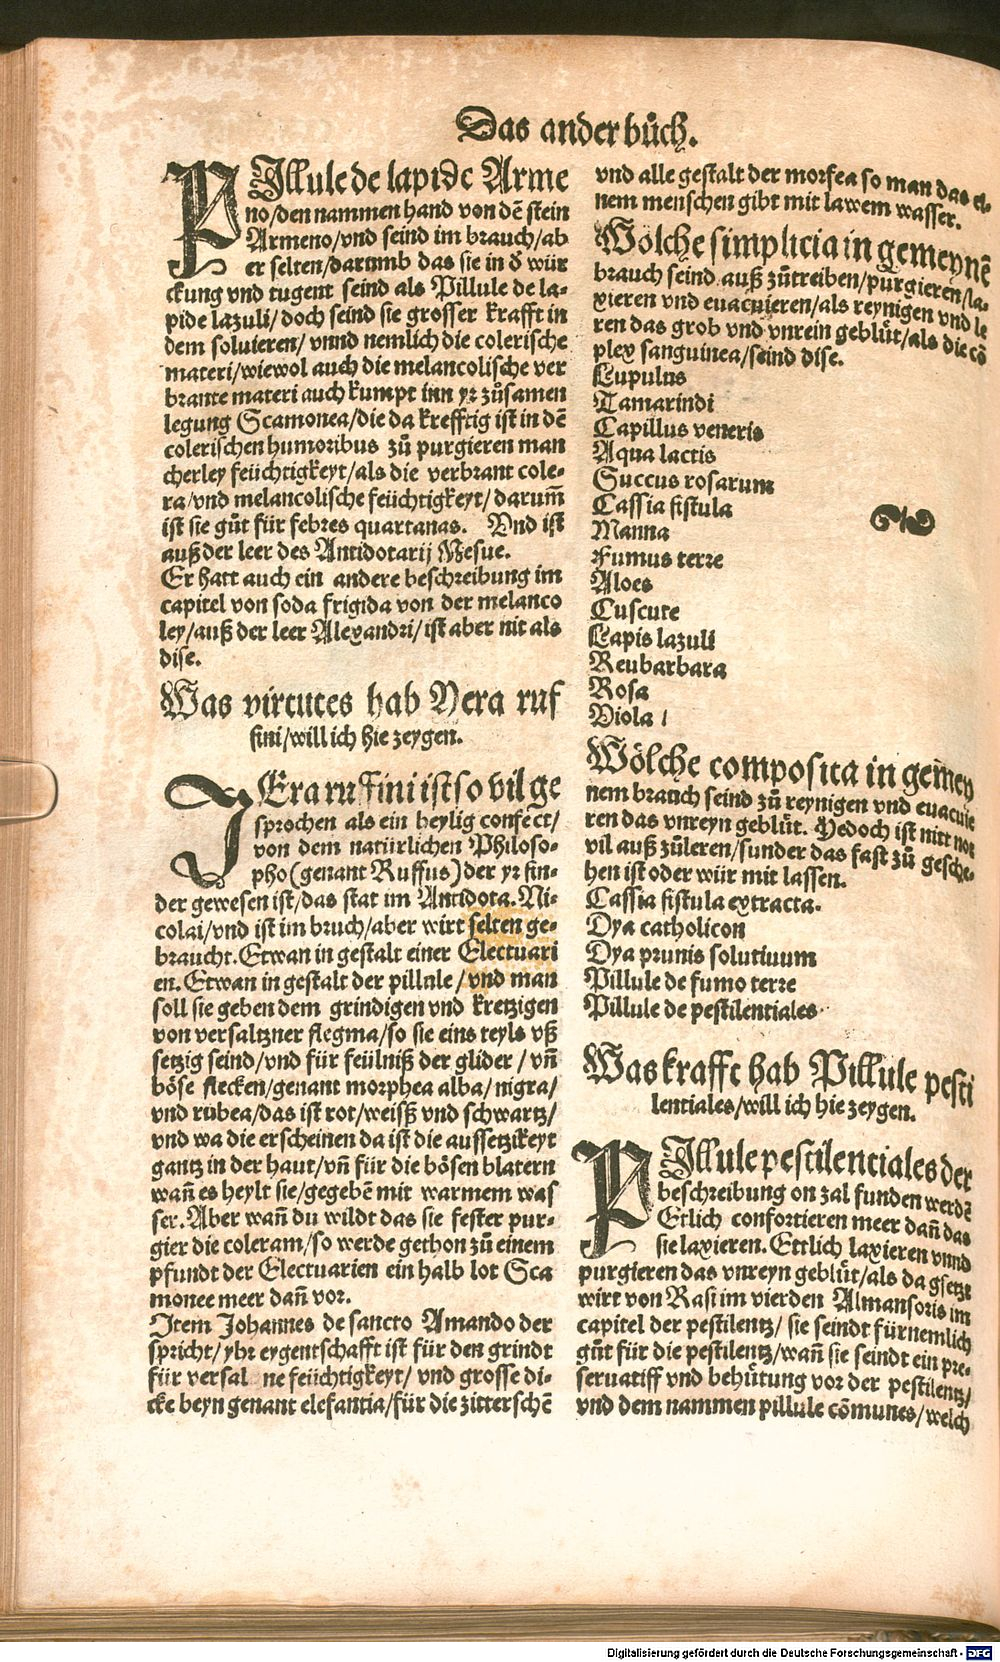 Das ander bůch.
PIllule de lapide Arme
no/den nammen hand von dē stein
Armeno/vnd seind im brauch/ab
er selten/darumb das sie in d̕ wür
ckung vnd tugent seind als Pillule de la-
pide lazuli/doch seind sie grosser krafft in
dem soluieren/vnnd nemlich die colerische
materi/wiewol auch die melancolische ver
brante materi auch kumpt inn yr zůsamen
legung Scamonea/die da krefftig ist in dē
colerischen humoribus zů purgieren man
cherley feüchtigkeyt/als die verbrant cole-
ra/vnd melancolische feüchtigkeyt/darum̄
ist sie gůt für febres quartanas. Vnd ist
auß der leer des Antidotarij Mesue.
Er hatt auch ein andere beschreibung im
capitel von soda frigida von der melanco
ley/auß der leer Alexandri/ist aber nit als
dise.
Was virtutes hab Yera ruf
fini/will ich hie zeygen.
IEra ruffini ist so vil ge
sprochen als ein heylig confect/
von dem natürlichen Philoso-
pho (genant Ruffus) der yr fin-
der gewesen ist/das stat im Antidota. Ni-
colai/vnd ist im bruch/aber wirt selten ge-
braucht. Etwan in gestalt einer Electuari
en. Etwan in gestalt der pillule/vnd man
soll sie geben dem grindigen vnd kretzigen
von versaltzner flegma/so sie eins teyls vß
setzig seind/vnd für feülniß der glider/vn̄
böse flecken/genant morphea alba/nigra/
vnd rubea/das ist rot/weiß vnd schwartz/
vnd wa die erscheinen da ist die aussetzikeyt
gantz in der haut/vn̄ für die bösen blatern
wan̄ es heylt sie/gegebē mit warmem was
ser. Aber wan̄ du wildt das sie fester pur-
gier die coleram/so werde gethon zů einem
pfundt der Electuarien ein halb lot Sca
monee meer dan̄ vor.
Item Johannes de sancto Amando der
spricht/yhr eygentschafft ist für den grindt
für versal ne feüchtigkeyt/vnd grosse di-
cke beyn genant elefantia/für die zitterschē
vnd alle gestalt der morfea so man das ei-
nem menschen gibt mit lawem wasser.
Wölche simplicia in gemeynē
brauch seind auß zůtreiben/purgieren/la-
xieren vnd euacuieren/als reynigen vnd le
ren das grob vnd vnrein geblüt/als die cō
plex sanguinea/seind dise.
Lupulus
Tamarindi
Capillus veneris
Aqua lactis
Succus rosarum
Cassia fistula
Manna
Fumus terre
Aloes
Cuscute
Lapis lazuli
Reubarbara
Rosa
Viola/
Wölche composita in gemey
nem brauch seind zů reynigen vnd euacuie
ren das vnreyn geblüt. Yedoch ist nitt not
vil auß zůleren/sunder das fast zů gesche-
hen ist oder wür mit lassen.
Cassia fistula extracta.
Dya catholicon
Dya prunis solutiuum
Pillule de fumo terre
Pillule de pestilentiales
Was krafft hab Pillule pesti
lentiales/will ich hie zeygen.
PIllule pestilentiales der
beschreibung on zal funden werdē
Etlich confortieren meer dan̄ das
sie laxieren. Ettlich laxieren vnnd
purgieren das vnreyn geblüt/als da gsetzt
wirt von Rasi im vierden Almansoris im
capitel der pestilentz/sie seindt fürnemlich
gůt für die pestilentz/wan̄ sie seindt ein pre-
seruatiff vnd behütung vor der pestilentz/
vnd dem nammen pillule cōmunes/welch
Digitalisierung gefördert durch die Deutsche Forschungsgemeinschaft - DFG